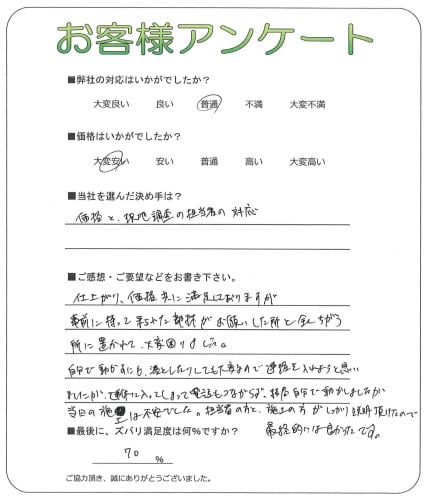 お客様アンケート
■弊社の対応はいかがでしたか？
大変良い 良い 普通 不満 大変不満
■価格はいかがでしたか？
大変安い 安い 普通 高い 大変高い
■当社を選んだ決め手は？
価格と、現地調査の担当者の対応
■ご感想・ご要望などをお書き下さい。
仕上がり、価格共に満足しておりますが
事前に持って来られた部材がお願いした所と全くちがう
所に置かれて、大変困りました。
自分で動かすにも、落としたりしても大変なので連絡を入れようと思い
ましたが、連休に入ってしまって電話もつながらず、結局自分で動かしましたが
当日の施工は不安でした。担当者の方と、施工の方がしっかり説明頂けたので
最終的には良かったです。
■最後に、ズバリ満足度は何％ですか？
70 %
ご協力頂き、誠にありがとうございました。